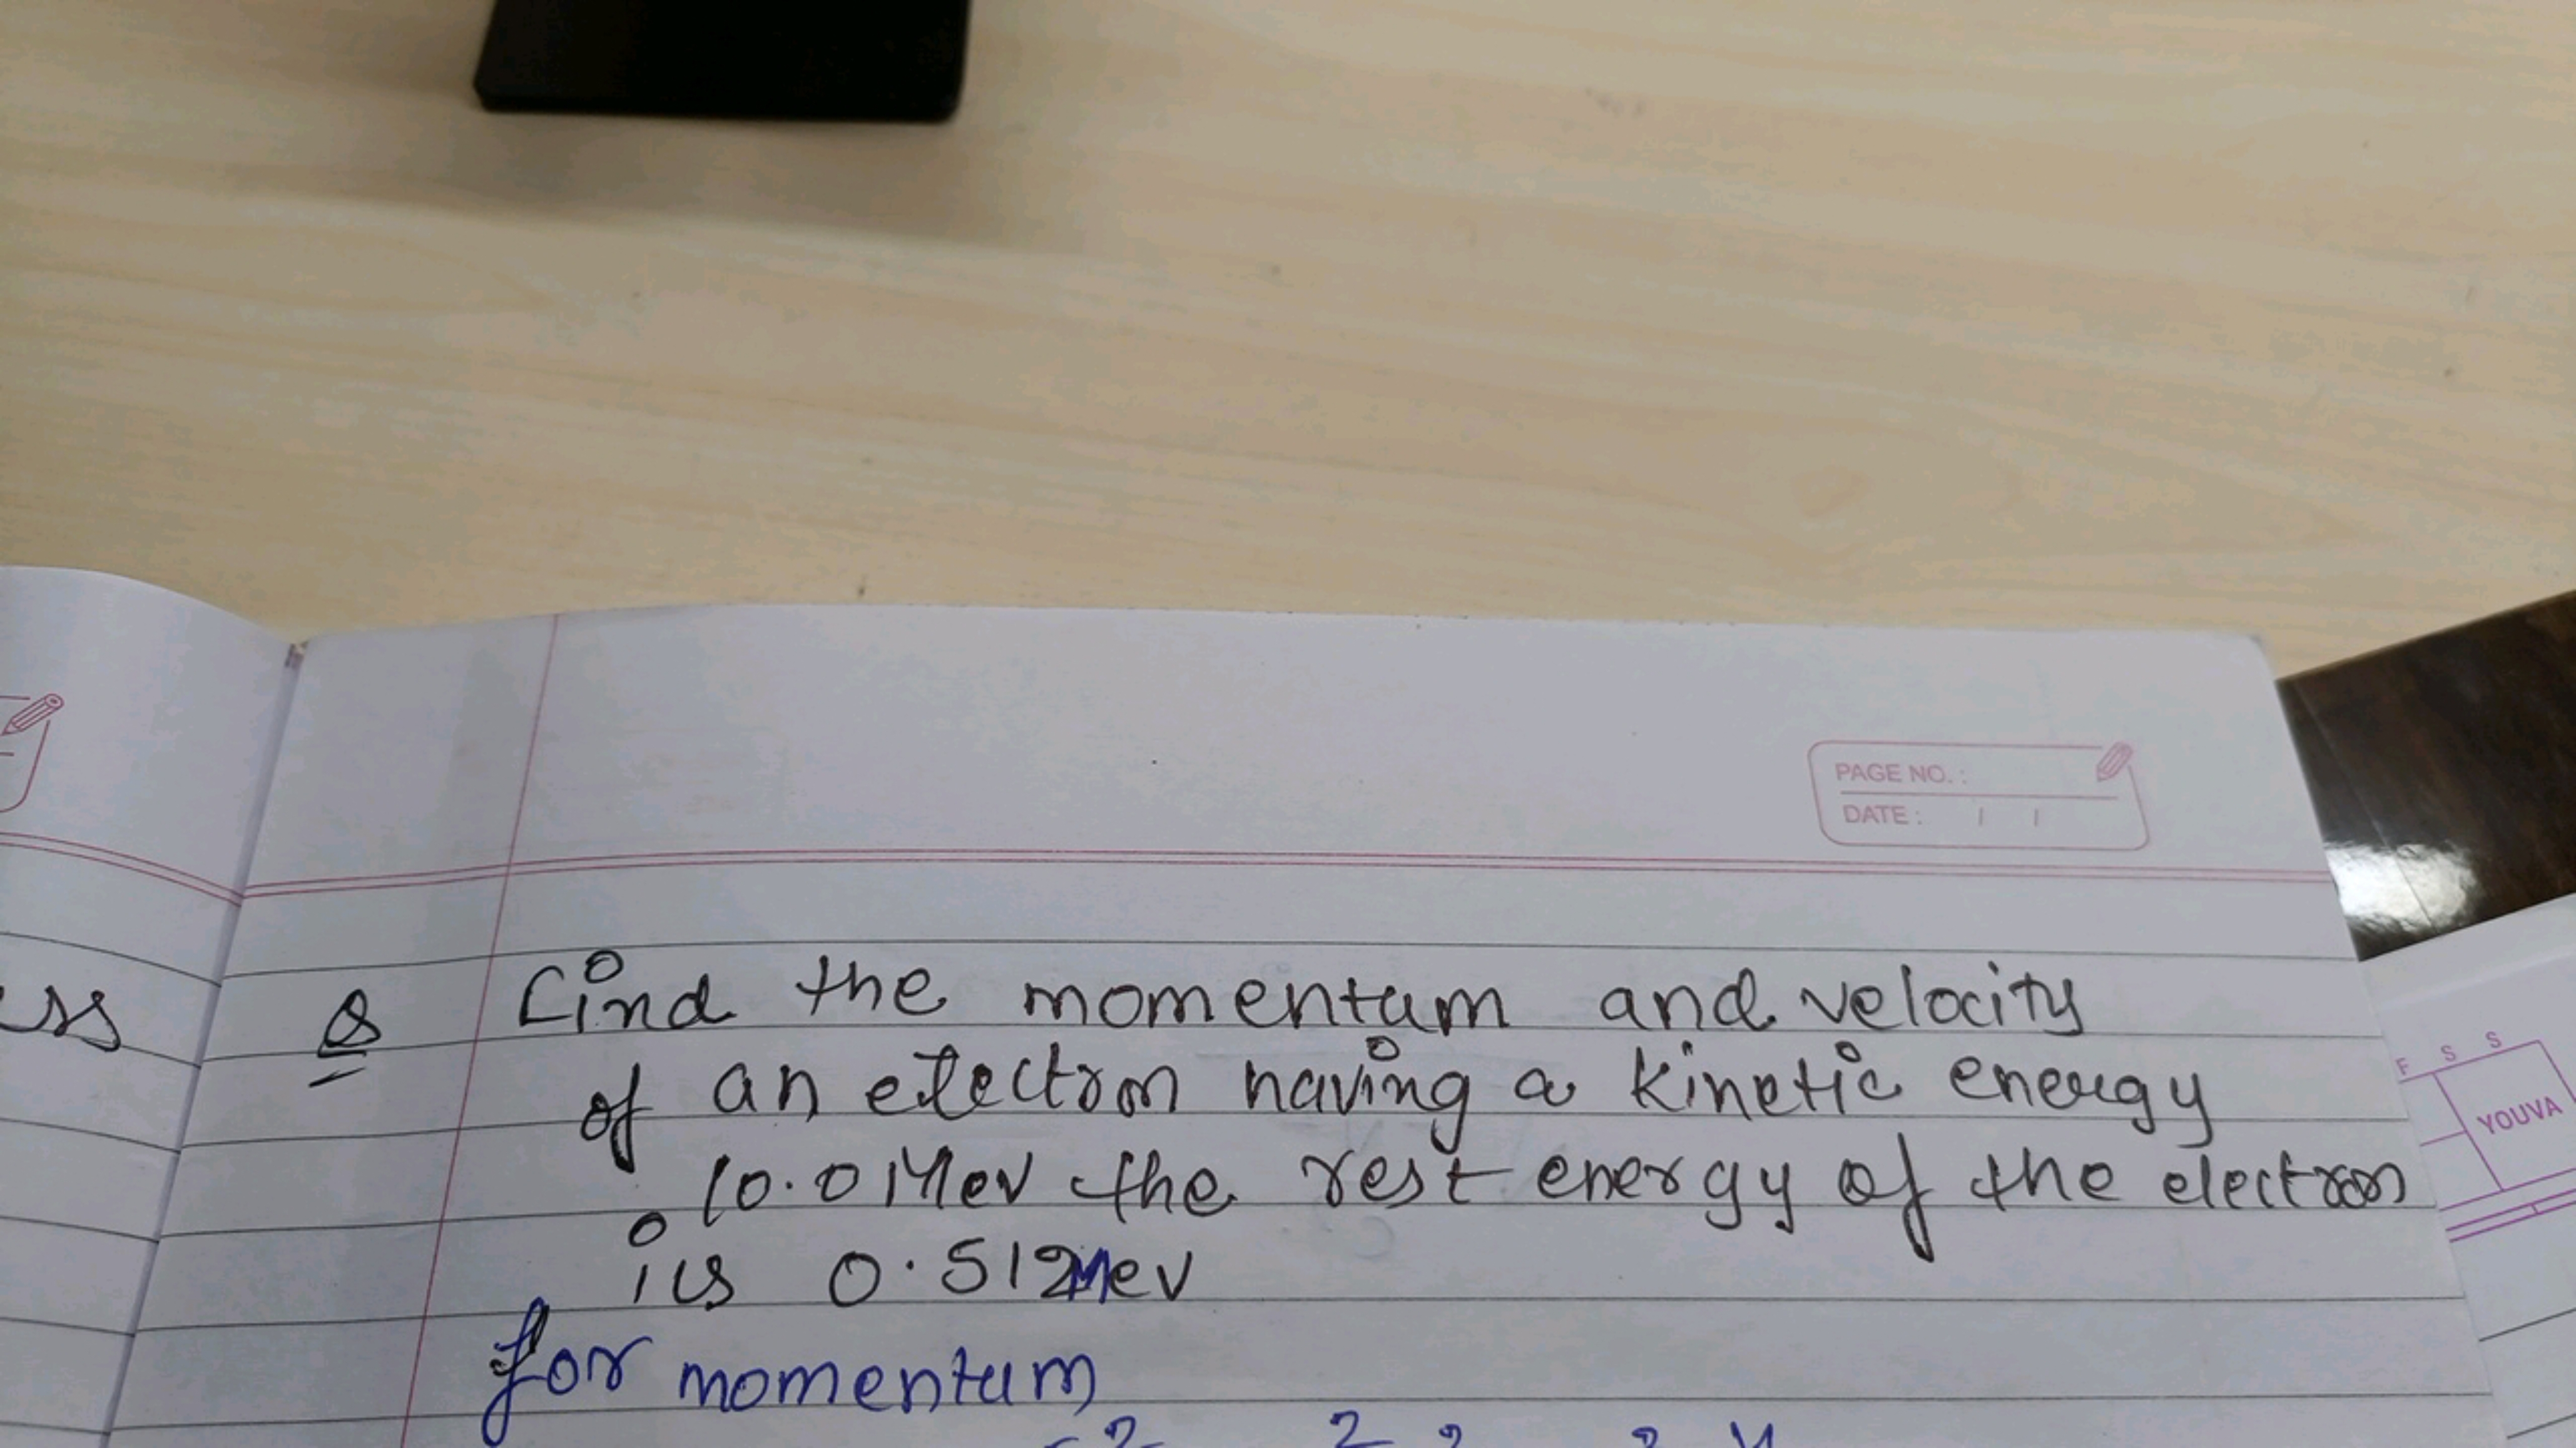 PAGE NO. :
DATE : / /
ess
Q Find the momentum and velocity
of an electron having a kinetic energy
10.0 Mev the rest energy of the electron
is 0.512Mev
for momentum
F S S
YOUVA